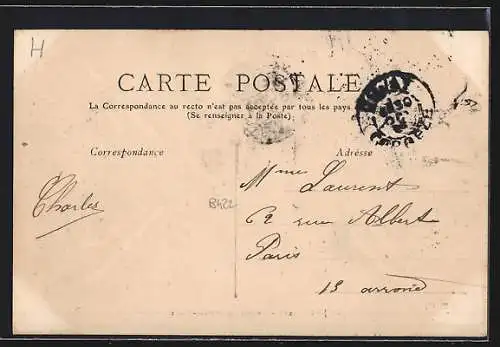 H
CARTE POSTALE
La Correspondance au recto n'est pas acceptée par tous les pays
(Se renseigner à la Poste)
Correspondance
Adresse
Mme Laurent
Charles
B422
62 rue Albert
Paris
13 arrond